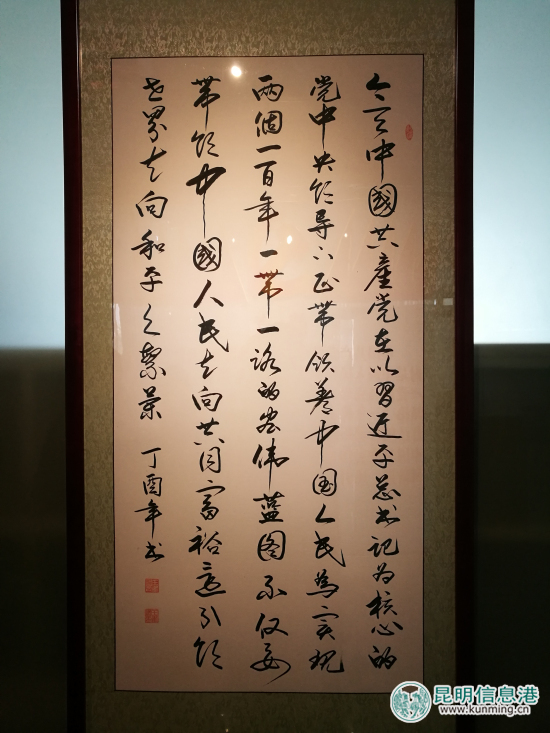 今天中國共產党在以習近平总书记为核心的
党中央领导下正带领着中国人民為实现
两個一百年一带一路的宏伟蓝图不仅要
带领中國人民走向共同富裕还引领
世界走向和平之繁 丁酉年书
昆明信息港
www.kunming.cn